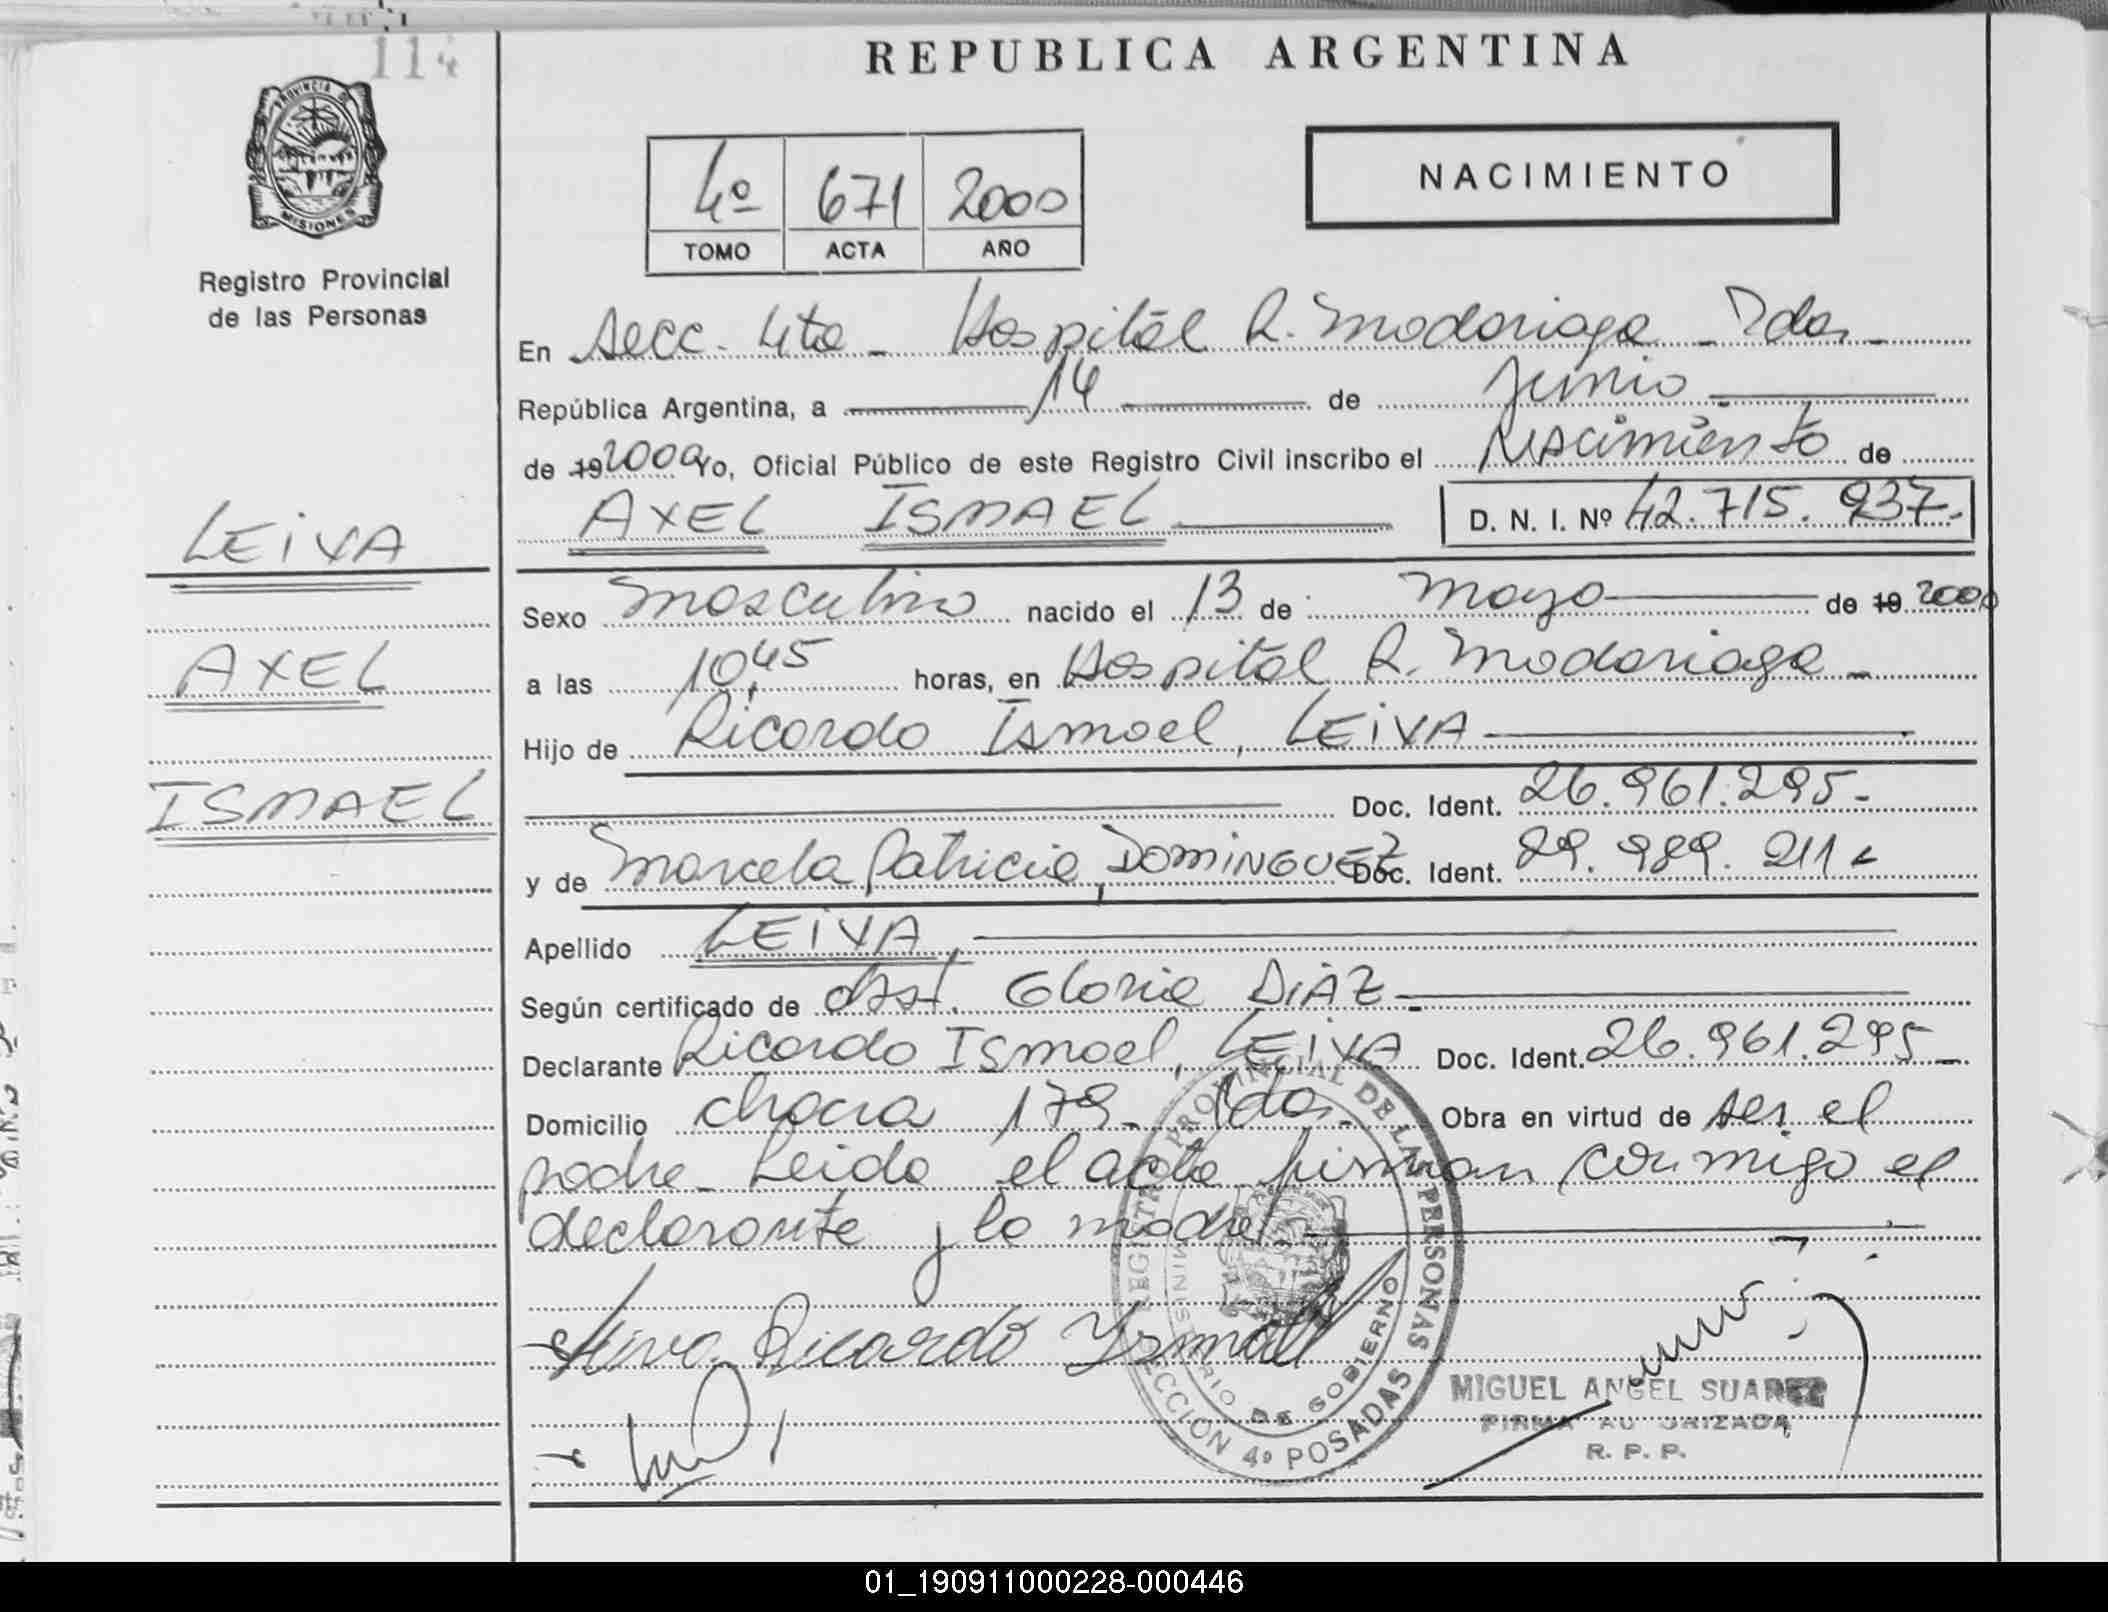 114
REPUBLICA ARGENTINA
PROVINCIA D
MISIONES
Registro Provincial
de las Personas
4º 671 2000
TOMO ACTA AÑO
NACIMIENTO
En Secc. 4ta - Hospital R. Madariaga - Pdas -
República Argentina, a 14 de Junio
de 19 2000 Yo, Oficial Público de este Registro Civil inscribo el Nacimiento de
AXEL ISMAEL D. N. I. Nº 42.715.937.-
LEIVA
AXEL
ISMAEL
Sexo Masculino nacido el 13 de Mayo de 19 2000
a las 10,45 horas, en Hospital R. Madariaga -
Hijo de Ricardo Ismael, LEIVA
Doc. Ident. 26.961.295.-
y de Marcela Patricia, DOMINGUEZ Doc. Ident. 29.989.211
Apellido LEIVA,
Según certificado de Obst. Gloria DIAZ
Declarante Ricardo Ismael, LEIVA Doc. Ident. 26.961.295 -
Domicilio chacra 179 - Pdas. Obra en virtud de ser el
padre - Leida el acta firman conmigo el
declarante y la madre.
Leiva Ricardo Ysmael
REGISTRO PROVINCIAL DE LAS PERSONAS
MINISTERIO DE GOBIERNO
SECCION 4º POSADAS
MIGUEL ANGEL SUAREZ
FIRMA AUTORIZADA
R. P. P.
01_190911000228-000446